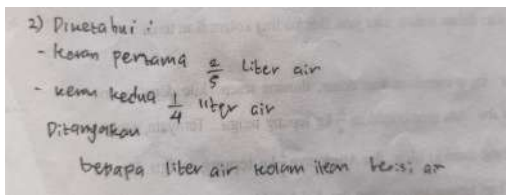 2) Diketahui :
- keran pertama 2/5 Liter air
- keran kedua 1/4 liter air
Ditanyakan
berapa liter air kolam ikan berisi air